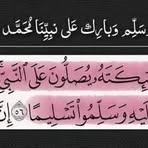 وَسَلِّم وَبَارِك عَلى نَبِيِّنَا مُحَمَّد
ـئِكَتَهُۥ يُصَلُّونَ عَلَى ٱلنَّبِيِّ
ـلَيۡهِ وَسَلِّمُواْ تَسۡلِيمًا ٥٦ إِنَّ